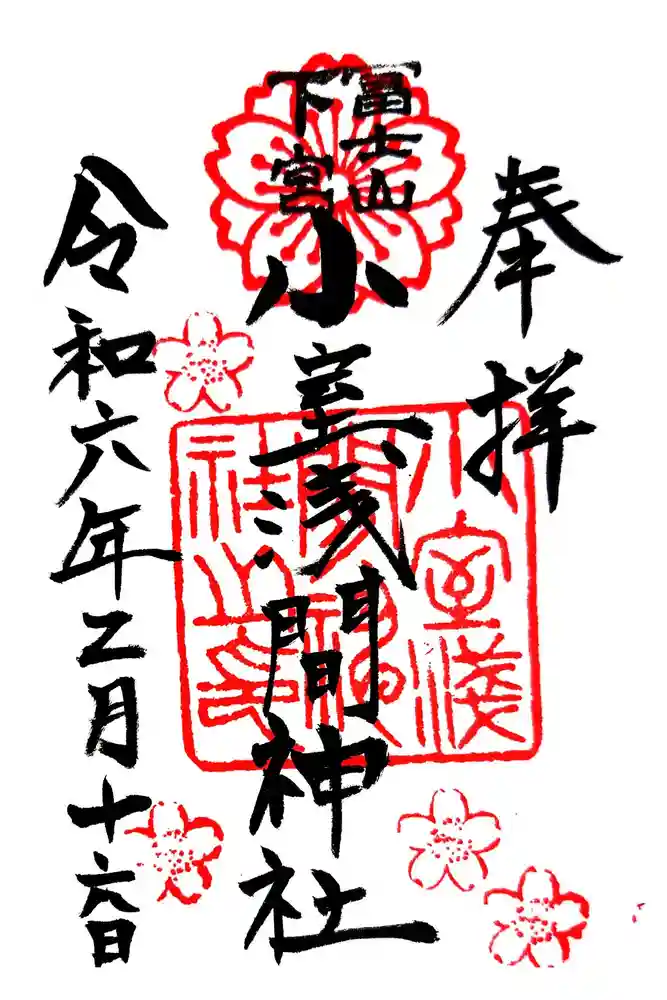 奉拝
冨士山
下宮
小室浅間神社
令和六年三月十六日
小室浅
間神
社之印